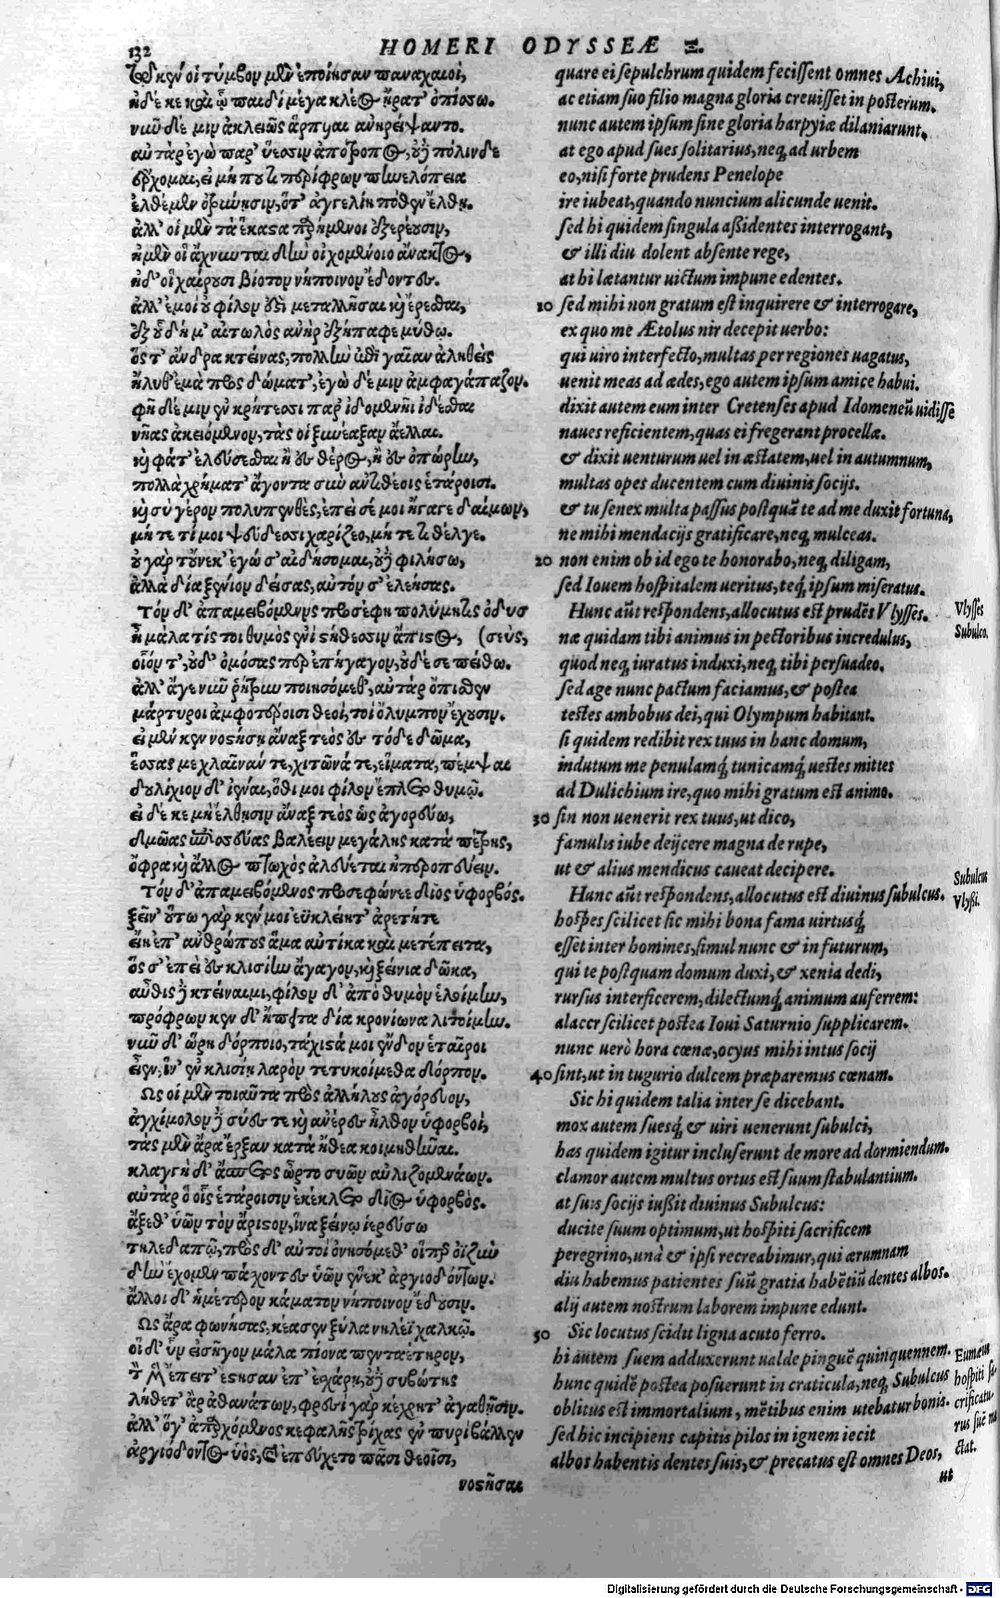 132
HOMERI ODYSSEÆ Ξ.
Τῷ κέν οἱ τύμβον μὲν ἐποίησαν παναχαιοί,
ἠδέ κε καὶ ᾧ παιδὶ μέγα κλέος ἤρατ' ὀπίσσω.
νῦν δέ μιν ἀκλειῶς ἅρπυιαι ἀνηρείψαντο.
αὐτὰρ ἐγὼ παρ' ὕεσσιν ἀπότροπος, οὐδὲ πόλινδε
ἔρχομαι, εἰ μή πού τι περίφρων πηνελόπεια
ἐλθέμεν ὀτρύνησιν, ὅτ' ἀγγελίη ποθὲν ἔλθη.
ἀλλ' οἱ μὲν τὰ ἕκαστα παρήμενοι ἐξερέουσιν,
ἠμὲν οἳ ἄχνυνται δὴν οἰχομένοιο ἄνακτος,
ἠδ' οἳ χαίρουσι βίοτον νήποινον ἔδοντες.
ἀλλ' ἐμοὶ οὐ φίλον ἐστὶ μεταλλῆσαι καὶ ἐρέσθαι,
ἐξ οὗ δή μ' αἰτωλὸς ἀνὴρ ἐξήπαφε μύθῳ.
ὅς τ' ἄνδρα κτείνας, πολλὴν ἐπὶ γαῖαν ἀληθεὶς
ἤλυθ' ἐμὰ πρὸς δώματ', ἐγὼ δέ μιν ἀμφαγάπαζον.
φῆ δέ μιν ἐν κρήτεσσι παρ' ἰδομενῆι ἰδέσθαι
νῆας ἀκειόμενον, τάς οἱ ξυνέαξαν ἄελλαι.
καὶ φάτ' ἐλεύσεσθαι ἢ ἐς θέρος, ἢ ἐς ὀπώρην,
πολλὰ χρήματ' ἄγοντα σὺν ἀντιθέοις ἑτάροισι.
καὶ σὺ γέρον πολυπενθὲς, ἐπεί σέ μοι ἤγαγε δαίμων,
μήτε τί μοι ψεύδεσσι χαρίζεο, μήτε τι θέλγε.
οὐ γὰρ τοὔνεκ' ἐγώ σ' αἰδήσομαι, οὐδὲ φιλήσω,
ἀλλὰ δία ξένιον δείσας, αὐτόν σ' ἐλεήσας.
Τὸν δ' ἀπαμειβόμενος προσέφη πολύμητις ὀδυσ
ἦ μάλα τίς τοι θυμὸς ἐνὶ στήθεσσιν ἄπιστος, (σεὺς,
οἷόν τ', οὐδ' ὀμόσας περ ἐπήγαγον, οὐδέ σε πείθω.
ἀλλ' ἄγε νῦν ῥήτρην ποιησόμεθ', αὐτὰρ ὄπισθεν
μάρτυροι ἀμφοτέροισι θεοί, τοὶ ὄλυμπον ἔχουσιν.
εἰ μέν κεν νοστήσῃ ἄναξ τεὸς ἐς τόδε δῶμα,
ἕσσας με χλαῖνάν τε, χιτῶνά τε, εἵματα, πέμψαι
δουλίχιον δ' ἰέναι, ὅθι μοι φίλον ἔπλετο θυμῷ.
εἰ δέ κε μὴ ἔλθησιν ἄναξ τεὸς ὡς ἀγορεύω,
δμῶας ἐπισσεύας βαλέειν μεγάλης κατὰ πέτρης,
ὄφρα καὶ ἄλλος πτωχὸς ἀλεύεται ἠπεροπεύειν.
Τὸν δ' ἀπαμειβόμενος προσεφώνεε δῖος ὑφορβός.
ξεῖν' οὕτω γάρ κέν μοι ἐϋκλείητ' ἀρετήτε
εἴη ἐπ' ἀνθρώπους ἅμα αὐτίκα καὶ μετέπειτα,
ὅς σ' ἐπεὶ ἐς κλισίην ἄγαγον, καὶ ξείνια δῶκα,
αὖθις δὲ κτείναιμι, φίλον δ' ἀπὸ θυμὸν ἑλοίμην,
πρόφρων κεν δ' ἤπειτα δία κρονίωνα λιτοίμην.
νῦν δ' ὥρη δόρποιο, τάχιστά μοι ἔνδον ἑταῖροι
εἶεν, ἵν' ἐν κλισίῃ λαρὸν τετυκοίμεθα δόρπον.
Ως οἱ μὲν τοιαῦτα πρὸς ἀλλήλους ἀγόρευον,
ἀγχίμολον δὲ σύες τε καὶ ἀνέρες ἦλθον ὑφορβοί,
τὰς μὲν ἄρα ἔρξαν κατὰ ἤθεα κοιμηθῆναι.
κλαγγὴ δ' ἄσπετος ὦρτο συῶν αὐλιζομενάων.
αὐτὰρ ὁ οἷς ἑτάροισιν ἐκέκλετο δῖος ὑφορβός.
ἄξεθ' ὑῶν τὸν ἄριστον, ἵνα ξείνῳ ἱερεύσω
τηλεδαπῷ, πρὸς δ' αὐτοὶ ὀνησόμεθ' οἵπερ ὀϊζὺν
δὴν ἔχομεν πάσχοντες ὑῶν ἕνεκ' ἀργιοδόντων.
ἄλλοι δ' ἡμέτερον κάματον νήποινον ἔδουσιν.
Ως ἄρα φωνήσας, κέασεν ξύλα νηλέϊ χαλκῷ.
οἱ δ' ὗν εἰσῆγον μάλα πίονα πενταέτηρον,
τὸν μὲν ἔπειτ' ἔστησαν ἐπ' ἐσχάρῃ, οὐδὲ συβώτης
λήθετ' ἄρ' ἀθανάτων, φρεσὶ γὰρ κέχρητ' ἀγαθῇσιν.
ἀλλ' ὅγ' ἀπαρχόμενος κεφαλῆς τρίχας ἐν πυρὶ βάλλεν
ἀργιόδοντος ὑός, καὶ ἐπεύχετο πᾶσι θεοῖσι,
νοστῆσαι
quare ei sepulchrum quidem fecissent omnes Achiui,
ac etiam suo filio magna gloria creuisset in posterum.
nunc autem ipsum sine gloria harpyiæ dilaniarunt.
at ego apud sues solitarius, neq; ad urbem
eo, nisi forte prudens Penelope
ire iubeat, quando nuncium alicunde uenit.
sed hi quidem singula assidentes interrogant,
& illi diu dolent absente rege,
at hi lætantur uictum impune edentes.
10 sed mihi non gratum est inquirere & interrogare,
ex quo me Ætolus uir decepit uerbo:
qui uiro interfecto, multas per regiones uagatus,
uenit meas ad ædes, ego autem ipsum amice habui.
dixit autem eum inter Cretenses apud Idomeneũ uidisse
naues reficientem, quas ei fregerant procellæ.
& dixit uenturum uel in æstatem, uel in autumnum,
multas opes ducentem cum diuinis socijs.
& tu senex multa passus postquã te ad me duxit fortuna,
ne mihi mendacijs gratificare, neq; mulceas.
20 non enim ob id ego te honorabo, neq; diligam,
sed Iouem hospitalem ueritus, teq; ipsum miseratus.
Hunc aũt respondens, allocutus est prudẽs Vlysses.
næ quidam tibi animus in pectoribus incredulus,
quod neq; iuratus induxi, neq; tibi persuadeo.
sed age nunc pactum faciamus, & postea
testes ambobus dei, qui Olympum habitant.
si quidem redibit rex tuus in hanc domum,
indutum me penulamq; tunicamq; uestes mittes
ad Dulichium ire, quo mihi gratum est animo.
30 sin non uenerit rex tuus, ut dico,
famulis iube deijcere magna de rupe,
ut & alius mendicus caueat decipere.
Hanc aũt respondens, allocutus est diuinus subulcus.
hospes scilicet sic mihi bona fama uirtusq;
esset inter homines, simul nunc & in futurum,
qui te postquam domum duxi, & xenia dedi,
rursus interficerem, dilectumq; animum auferrem:
alacer scilicet postea Ioui Saturnio supplicarem.
nunc uerò hora cœnæ, ocyus mihi intus socij
40 sint, ut in tugurio dulcem præparemus cœnam.
Sic hi quidem talia inter se dicebant.
mox autem suesq; & uiri uenerunt subulci,
has quidem igitur incluserunt de more ad dormiendum.
clamor autem multus ortus est suum stabulantium.
at suis socijs iussit diuinus Subulcus:
ducite suum optimum, ut hospiti sacrificem
peregrino, unà & ipsi recreabimur, qui ærumnam
diu habemus patientes suũ gratia habẽtiũ dentes albos.
alij autem nostrum laborem impune edunt.
50 Sic locutus scidit ligna acuto ferro.
hi autem suem adduxerunt ualde pinguẽ quinquennem.
hunc quidẽ postea posuerunt in craticula, neq; Subulcus
oblitus est immortalium, mẽtibus enim utebatur bonis.
sed hic incipiens capitis pilos in ignem iecit
albos habentis dentes suis, & precatus est omnes Deos,
ut
Vlysses
Subulco.
Subulcus
Vlyssi.
Eumæus
hospiti sa
crificatu-
rus suẽ ma
ctat.
Digitalisierung gefördert durch die Deutsche Forschungsgemeinschaft - DFG